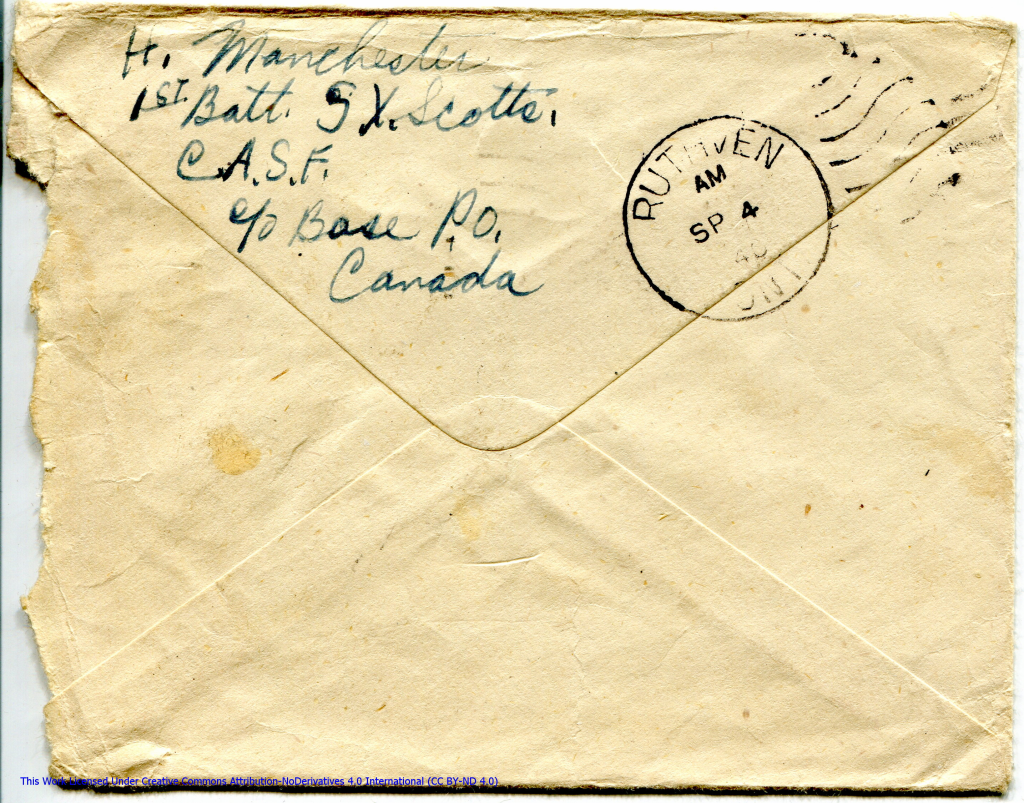 H. Manchester
1ST Batt. S X. Scotts.
C.A.S.F.
c/o Base P.O.
Canada
RUTHVEN
AM
SP 4
40
ONT
This Work Licensed Under Creative Commons Attribution-NoDerivatives 4.0 International (CC BY-ND 4.0)